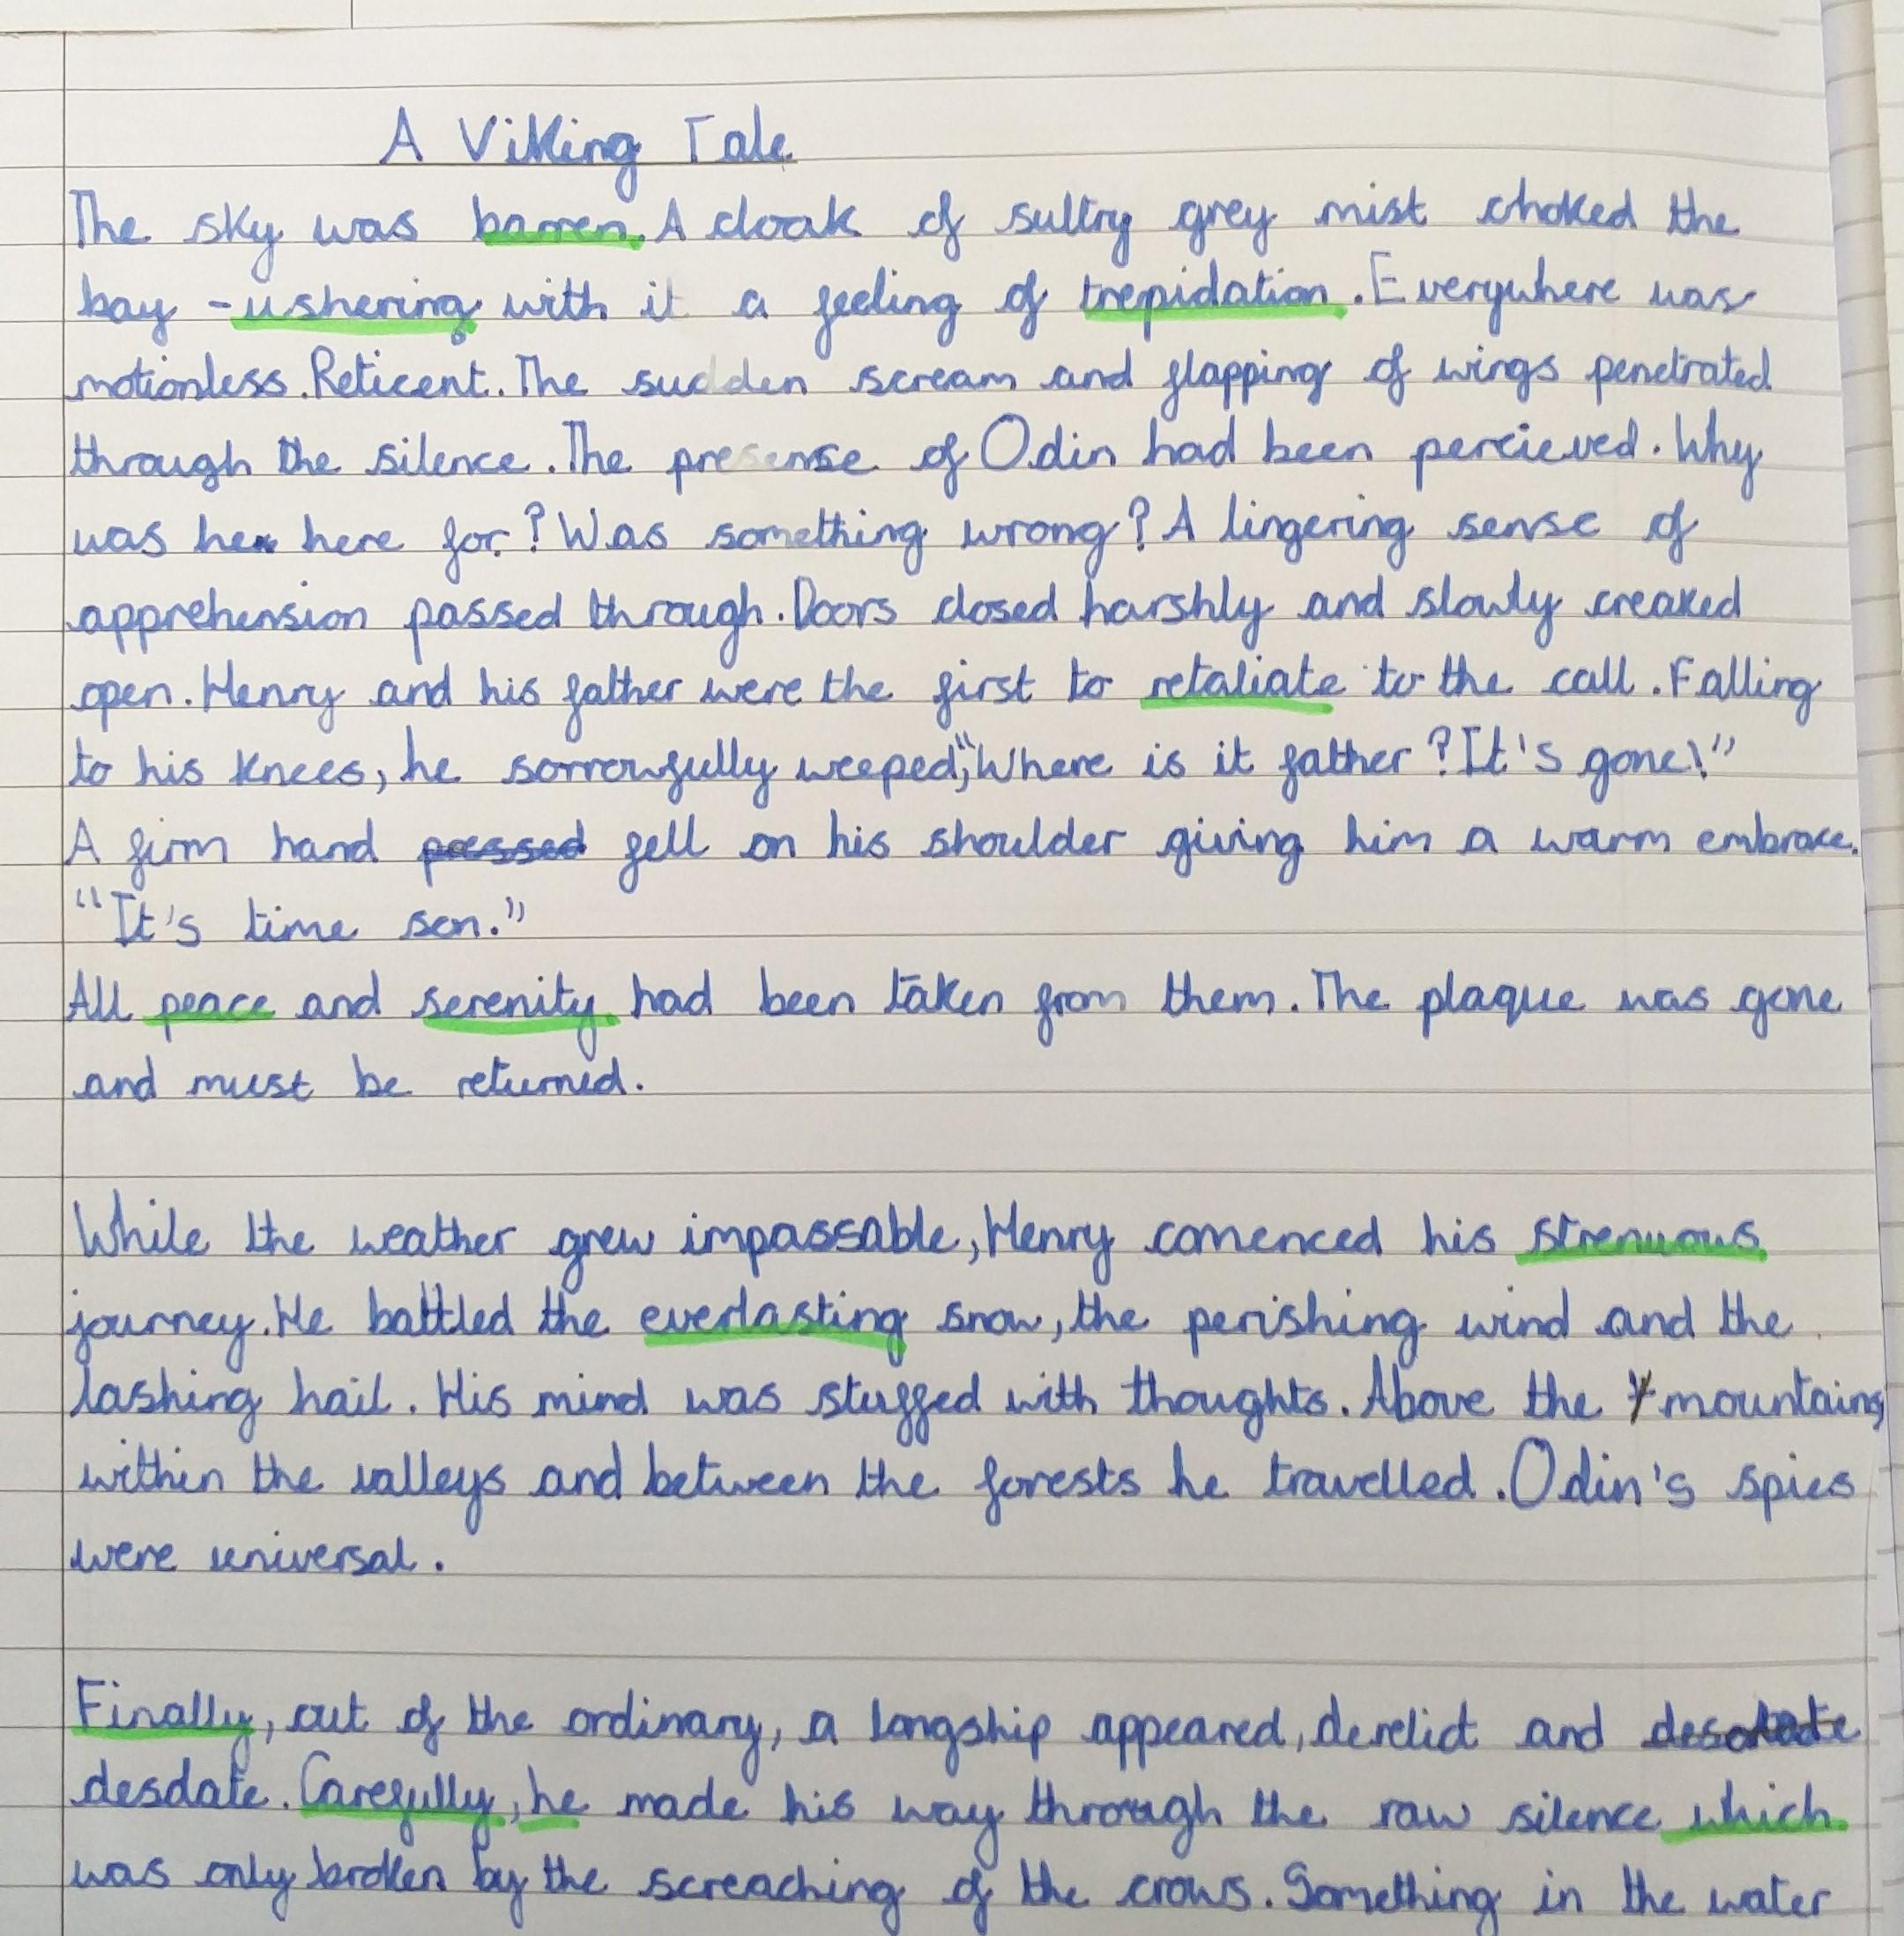 A Viking Tale
The sky was barren. A cloak of sultry grey mist choked the
bay - ushering with it a feeling of trepidation. Everywhere was
motionless. Reticent. The sudden scream and flapping of wings penetrated
through the silence. The presense of Odin had been percieved. Why
was he here for? Was something wrong? A lingering sense of
apprehension passed through. Doors closed harshly and slowly creaked
open. Henry and his father were the first to retaliate to the call. Falling
to his knees, he sorrowfully weeped, "Where is it father? It's gone!"
A firm hand passed fell on his shoulder giving him a warm embrace.
"It's time son."
All peace and serenity had been taken from them. The plaque was gone
and must be returned.
While the weather grew impassable, Henry comenced his strenuous
journey. He battled the everlasting snow, the perishing wind and the
lashing hail. His mind was stuffed with thoughts. Above the mountains
within the valleys and between the forests he travelled. Odin's spies
were universal.
Finally, out of the ordinary, a longship appeared, derelict and desolate
desolate. Carefully, he made his way through the raw silence which
was only broken by the screaching of the crows. Something in the water